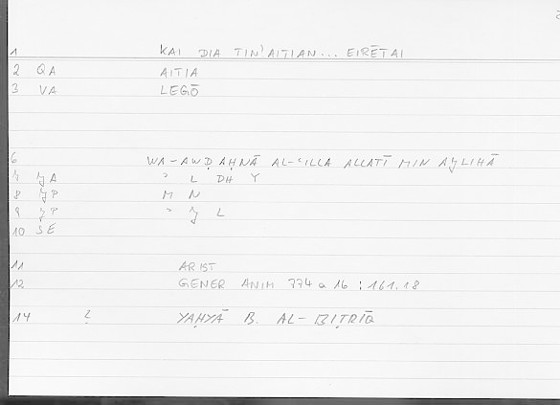 1 KAI DIA TIN'AITIAN... EIRĒTAI
2 QA AITIA
3 VA LEGŌ
6 WA-AWḌAḤNĀ AL-ʿILLA ALLATĪ MIN AǦLIHĀ
7 ǦA ʾ L DH Y
8 ǦP M N
9 ǦP ʾ Ǧ L
10 SE
11 ARIST
12 GENER ANIM 774 a 16 : 161.18
14 YAḤYĀ B. AL-BIṬRĪQ